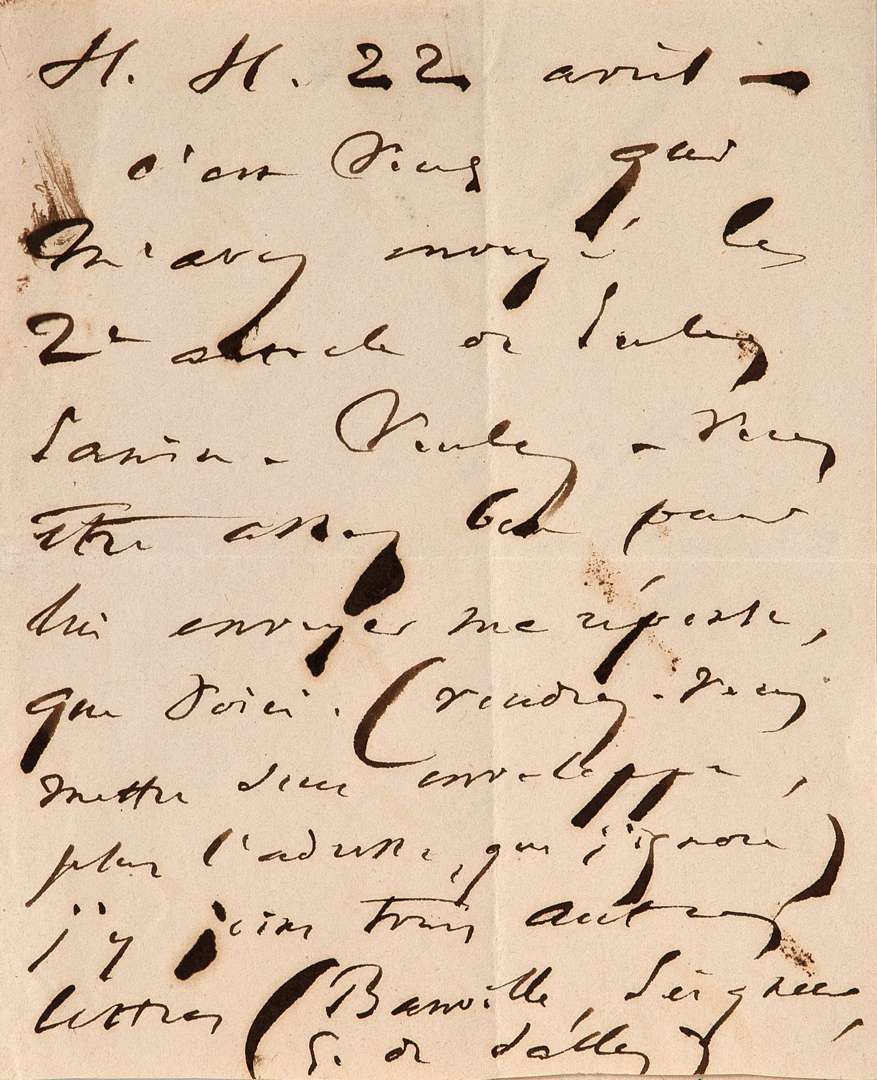 H. H. 22 août —
c'est vous qui
m'avez envoyé le
2e article de Jules
Janin – Voulez-vous
être assez bon pour
lui envoyer ma réponse,
que voici. (voudrez-vous
mettre sous enveloppe,
plus l'adresse, que j'ignore)
j'y joins trois autres
lettres (Banville,
de